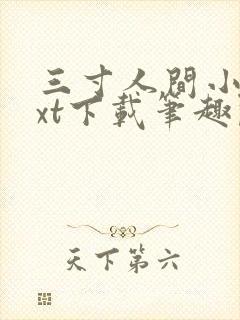 三寸人間小
xt下載筆趣
天下第六